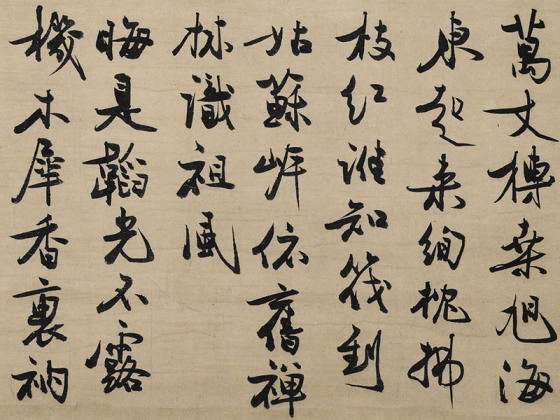 萬丈榑桒旭海
東起来絢拂
枝紅誰知筏到
姑蘇岸依舊禪
林識祖風
晦是韜光不露
機木犀香裏衲